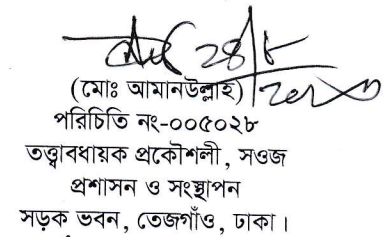 28/8
(মোঃ আমানউল্লাহ)
পরিচিতি নং-০০৫০২৮
তত্ত্বাবধায়ক প্রকৌশলী, সওজ
প্রশাসন ও সংস্থাপন
সড়ক ভবন, তেজগাঁও, ঢাকা।